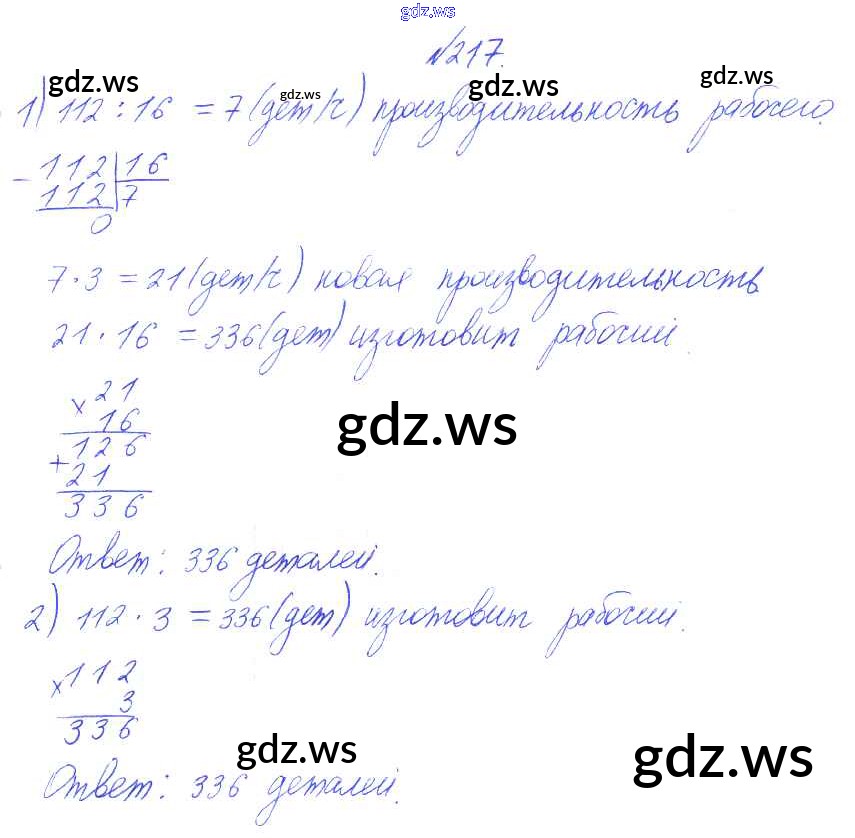 gdz.ws
№217.
gdz.ws gdz.ws gdz.ws gdz.ws
1) 112 : 16 = 7 (дет/ч) производительность рабочего.
- 112 | 16
112 | 7
0
7 · 3 = 21 (дет/ч) новая производительность
21 · 16 = 336 (дет) изготовит рабочий.
× 21
16
gdz.ws
126
+ 21
336
Ответ: 336 деталей.
2) 112 · 3 = 336 (дет) изготовит рабочий.
× 112
3
336
gdz.ws gdz.ws
Ответ: 336 деталей.